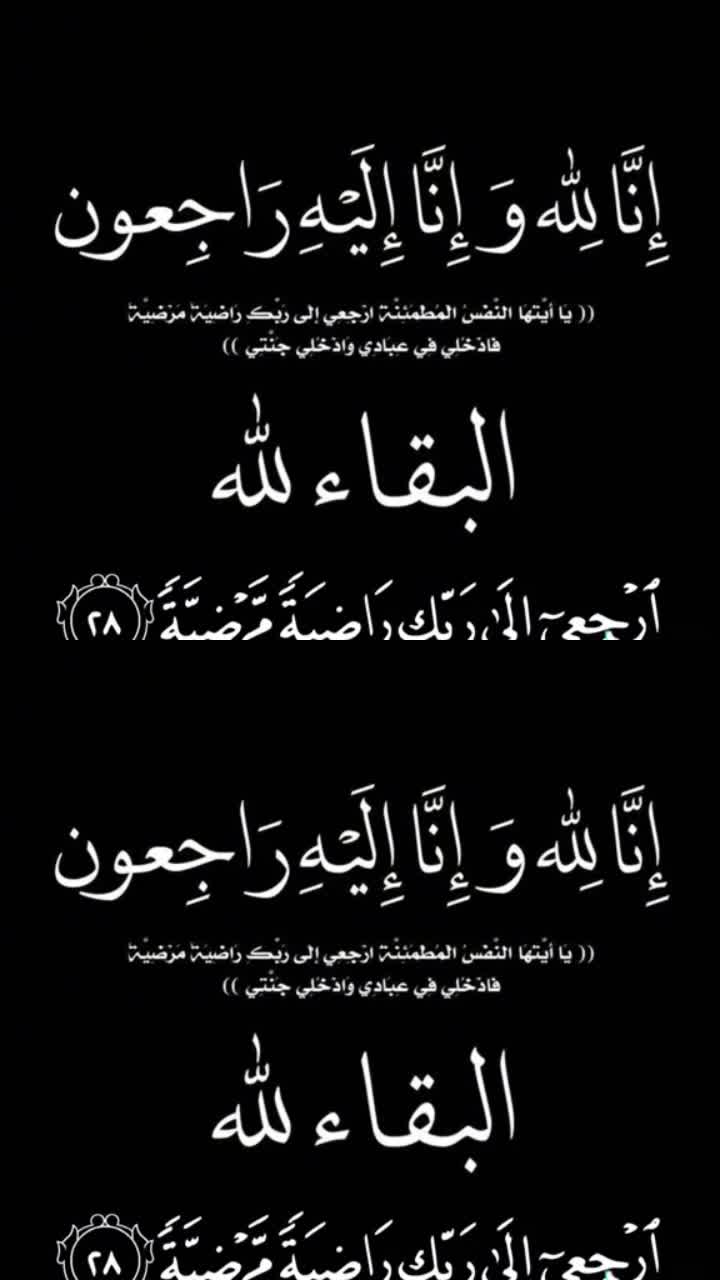 إِنَّا لِلّٰهِ وَ إِنَّا إِلَيْهِ رَاجِعون
(( يَا أيَّتهَا النَّفسُ المُطمَئِنَّة ارْجعِي إلى رَبِّكِ رَاضيَةً مَرْضيَّةً
فَادْخُلِي فِي عِبَادِي وَادْخُلي جَنَّتِي ))
البقاء لله
ٱرْجِعِىٓ إِلَىٰ رَبِّكِ رَاضِيَةً مَّرْضِيَّةً ٢٨
إِنَّا لِلّٰهِ وَ إِنَّا إِلَيْهِ رَاجِعون
(( يَا أيَّتهَا النَّفسُ المُطمَئِنَّة ارْجعِي إلى رَبِّكِ رَاضيَةً مَرْضيَّةً
فَادْخُلِي فِي عِبَادِي وَادْخُلي جَنَّتِي ))
البقاء لله
ٱرْجِعِىٓ إِلَىٰ رَبِّكِ رَاضِيَةً مَّرْضِيَّةً ٢٨